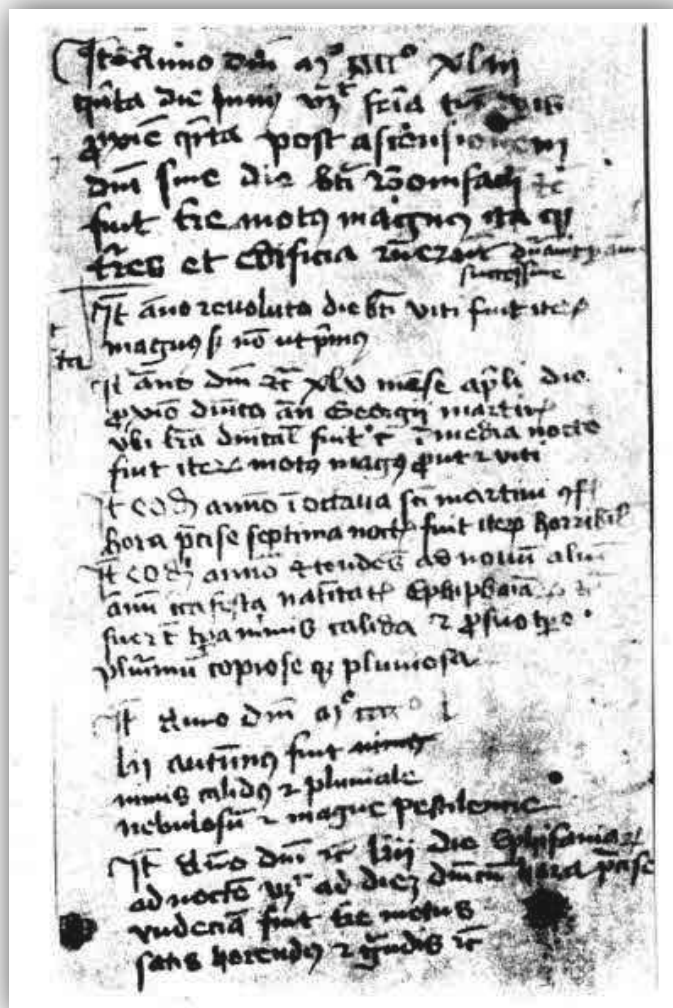 Itē Anno dm̄ mº cccc º xliii
qͥnta die Junij vꝫ fr̄ia
ꝓxīe qͣrta post ascensionem
dm̄ siue die bt̄i Bonifacij ꝛc̄
fuit tr̄e motꝯ magnus ita ꝙ
tr̄res et edificia ruerūt
successiue
It̄ āno reuoluto die bt̄i viti fuit iteꝝ
magnꝯ sꝫ nō ut pͥmꝯ
It̄ āno dm̄ ꝛc̄ xlv mēse ap̄li die
ꝓxīo dn̄ico an̄ Georgij martirꝭ
vbi lr̄a dn̄ical fuit c ī media nocte
fuit iteꝝ motꝯ magꝯ ꝓut ꝛ viti
It̄ eodē anno ī octaua sc̄i martini
hora p̄cise septima noctꝭ fuit iteꝝ horribil
It̄ eodē anno ad nouū aliū
annū festa natīitatꝭ Epiphaīa
fuer̄t tp̄a nimis calida ꝛ
plurimū copiose qꝫ pluuiosa
It̄ Anno dm̄ mº cccc º
lii autūnꝯ fuit
nimis calidꝯ ꝛ pluuiale
nebulosū ꝛ magne pestilencie
It̄ Anno dm̄ ꝛc̄ liii die Ephifaniaꝝ
ad noctē vꝫ ad diē dn̄icū hora p̄cise
vndecīa fuit tr̄e motus
satis horendꝯ ꝛ gͣndis ꝛc̄